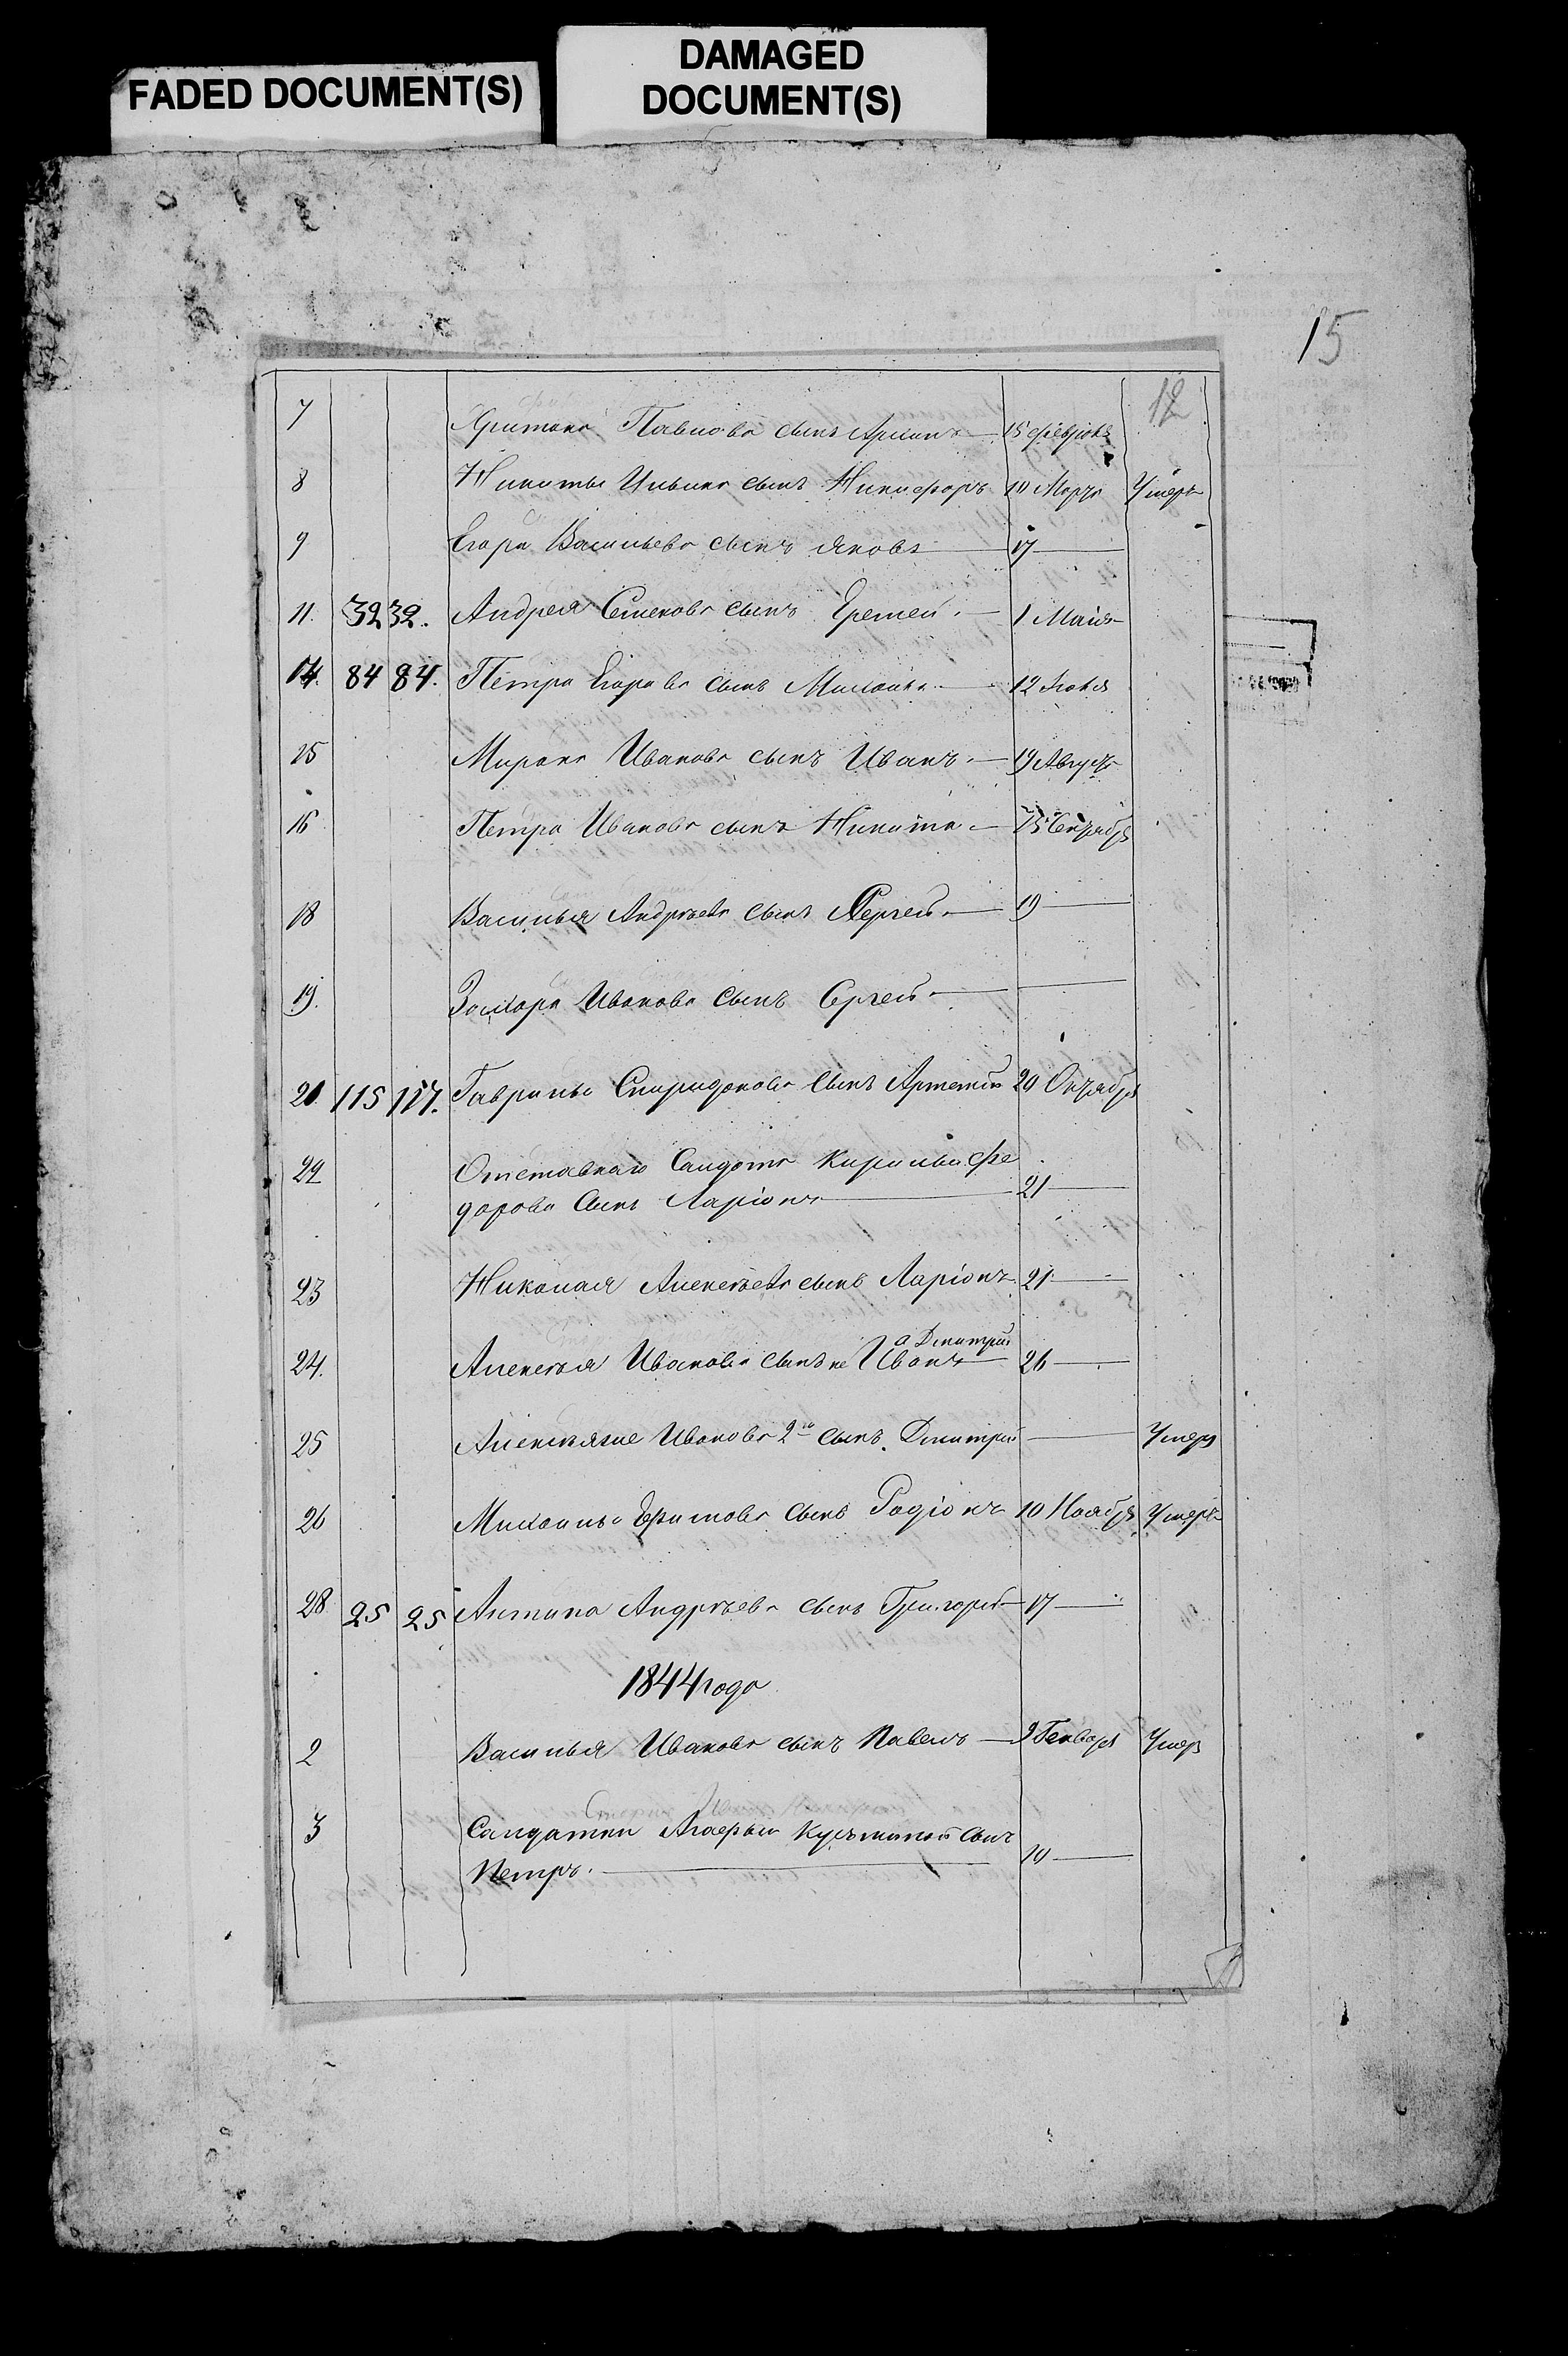 FADED DOCUMENT(S)
DAMAGED
DOCUMENT(S)
15
12
7 Павлова сынъ 15 февраля
8 Никиты Ильина сынъ Никифоръ 10 Марта Умеръ
9 Егора Васильева сынъ Яковъ 17
11. 32 32. Андрея Семенова сынъ Еремей. 1 Маия
14. 84 84. Петра Егорова сынъ Михаила 12 Июня
15 Мирона Иванова сынъ Иванъ. 19 Августа
16 Петра Иванова сынъ Никита 15 Сентября
18 Василья Андрѣева сынъ Сергей. 19
19. Захара Иванова сынъ Сергей
21. 115 117. Гаврилы Спиридонова сынъ Артемій 20 Октября
22 Отставнаго Салдата Кирилы Фе
дорова сынъ Ларіонъ 21
23 Николая Алексѣева сынъ Ларіонъ 21
24. Алексѣя Иванова сынъ не Иванъ а Дмитрій 26
25 Алексѣяже Иванова 2го сынъ. Дмитрій Умеръ
26 Михаилы Ефимова сынъ Родіонъ 10 Ноября Умеръ
28 25 25 Антипа Андрѣева сынъ Григорій 17
1844 года
2 Василья Иванова сынъ Павелъ 9 Генваря Умеръ
3 Салдатки Агафьи Кузьминой сынъ
Петръ. 10